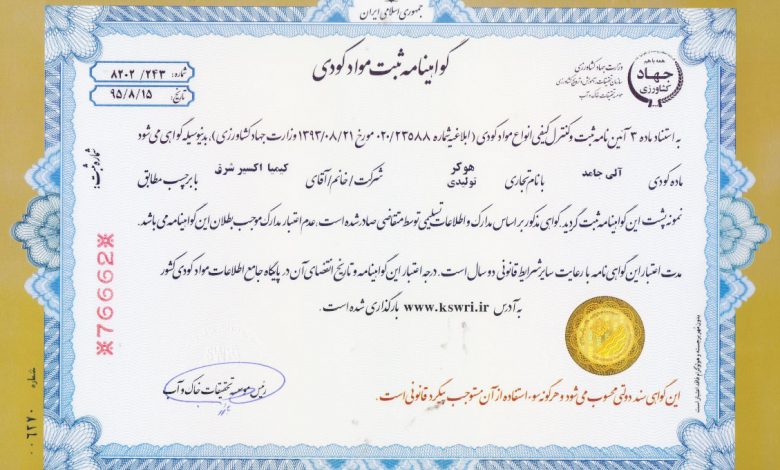 جمهوری اسلامی ایران
گواهینامه ثبت مواد کودی
شماره: ۸۲۰۲/۲۴۳
تاریخ: ۹۵/۸/۱۵
همه با هم
جهاد
کشاورزی
وزارت جهاد کشاورزی
سازمان تحقیقات، آموزش و ترویج کشاورزی
موسسه تحقیقات خاک و آب
به استناد ماده ۳ آئین نامه ثبت و کنترل کیفی انواع مواد کودی (ابلاغیه شماره ۰۲۰/۲۳۵۸۸ مورخ ۱۳۹۳/۰۸/۲۱ وزارت جهاد کشاورزی)، بدینوسیله گواهی می شود
ماده کودی آلی جامد با نام تجاری هوکر تولیدی شرکت/خانم/آقای کیمیا اکسیر شرق با برچسب مطابق
نمونه پشت این گواهینامه ثبت گردید. گواهی مذکور بر اساس مدارک و اطلاعات تسلیمی توسط متقاضی صادر شده است، عدم اعتبار مدارک موجب بطلان این گواهینامه می باشد.
مدت اعتبار این گواهی نامه با رعایت سایر شرایط قانونی دو سال است. درجه اعتبار این گواهینامه و تاریخ انقضای آن در پایگاه جامع اطلاعات مواد کودی کشور
به آدرس www.kswri.ir بارگذاری شده است.
رئیس موسسه تحقیقات خاک و آب
این گواهی سند دولتی محسوب می شود و هرگونه سوء استفاده از آن مستوجب پیگرد قانونی است.
شماره ثبت:
※76662※
شماره ۰۰۶۲۷۰
بدون مهر برجسته و هولوگرام فاقد اعتبار است